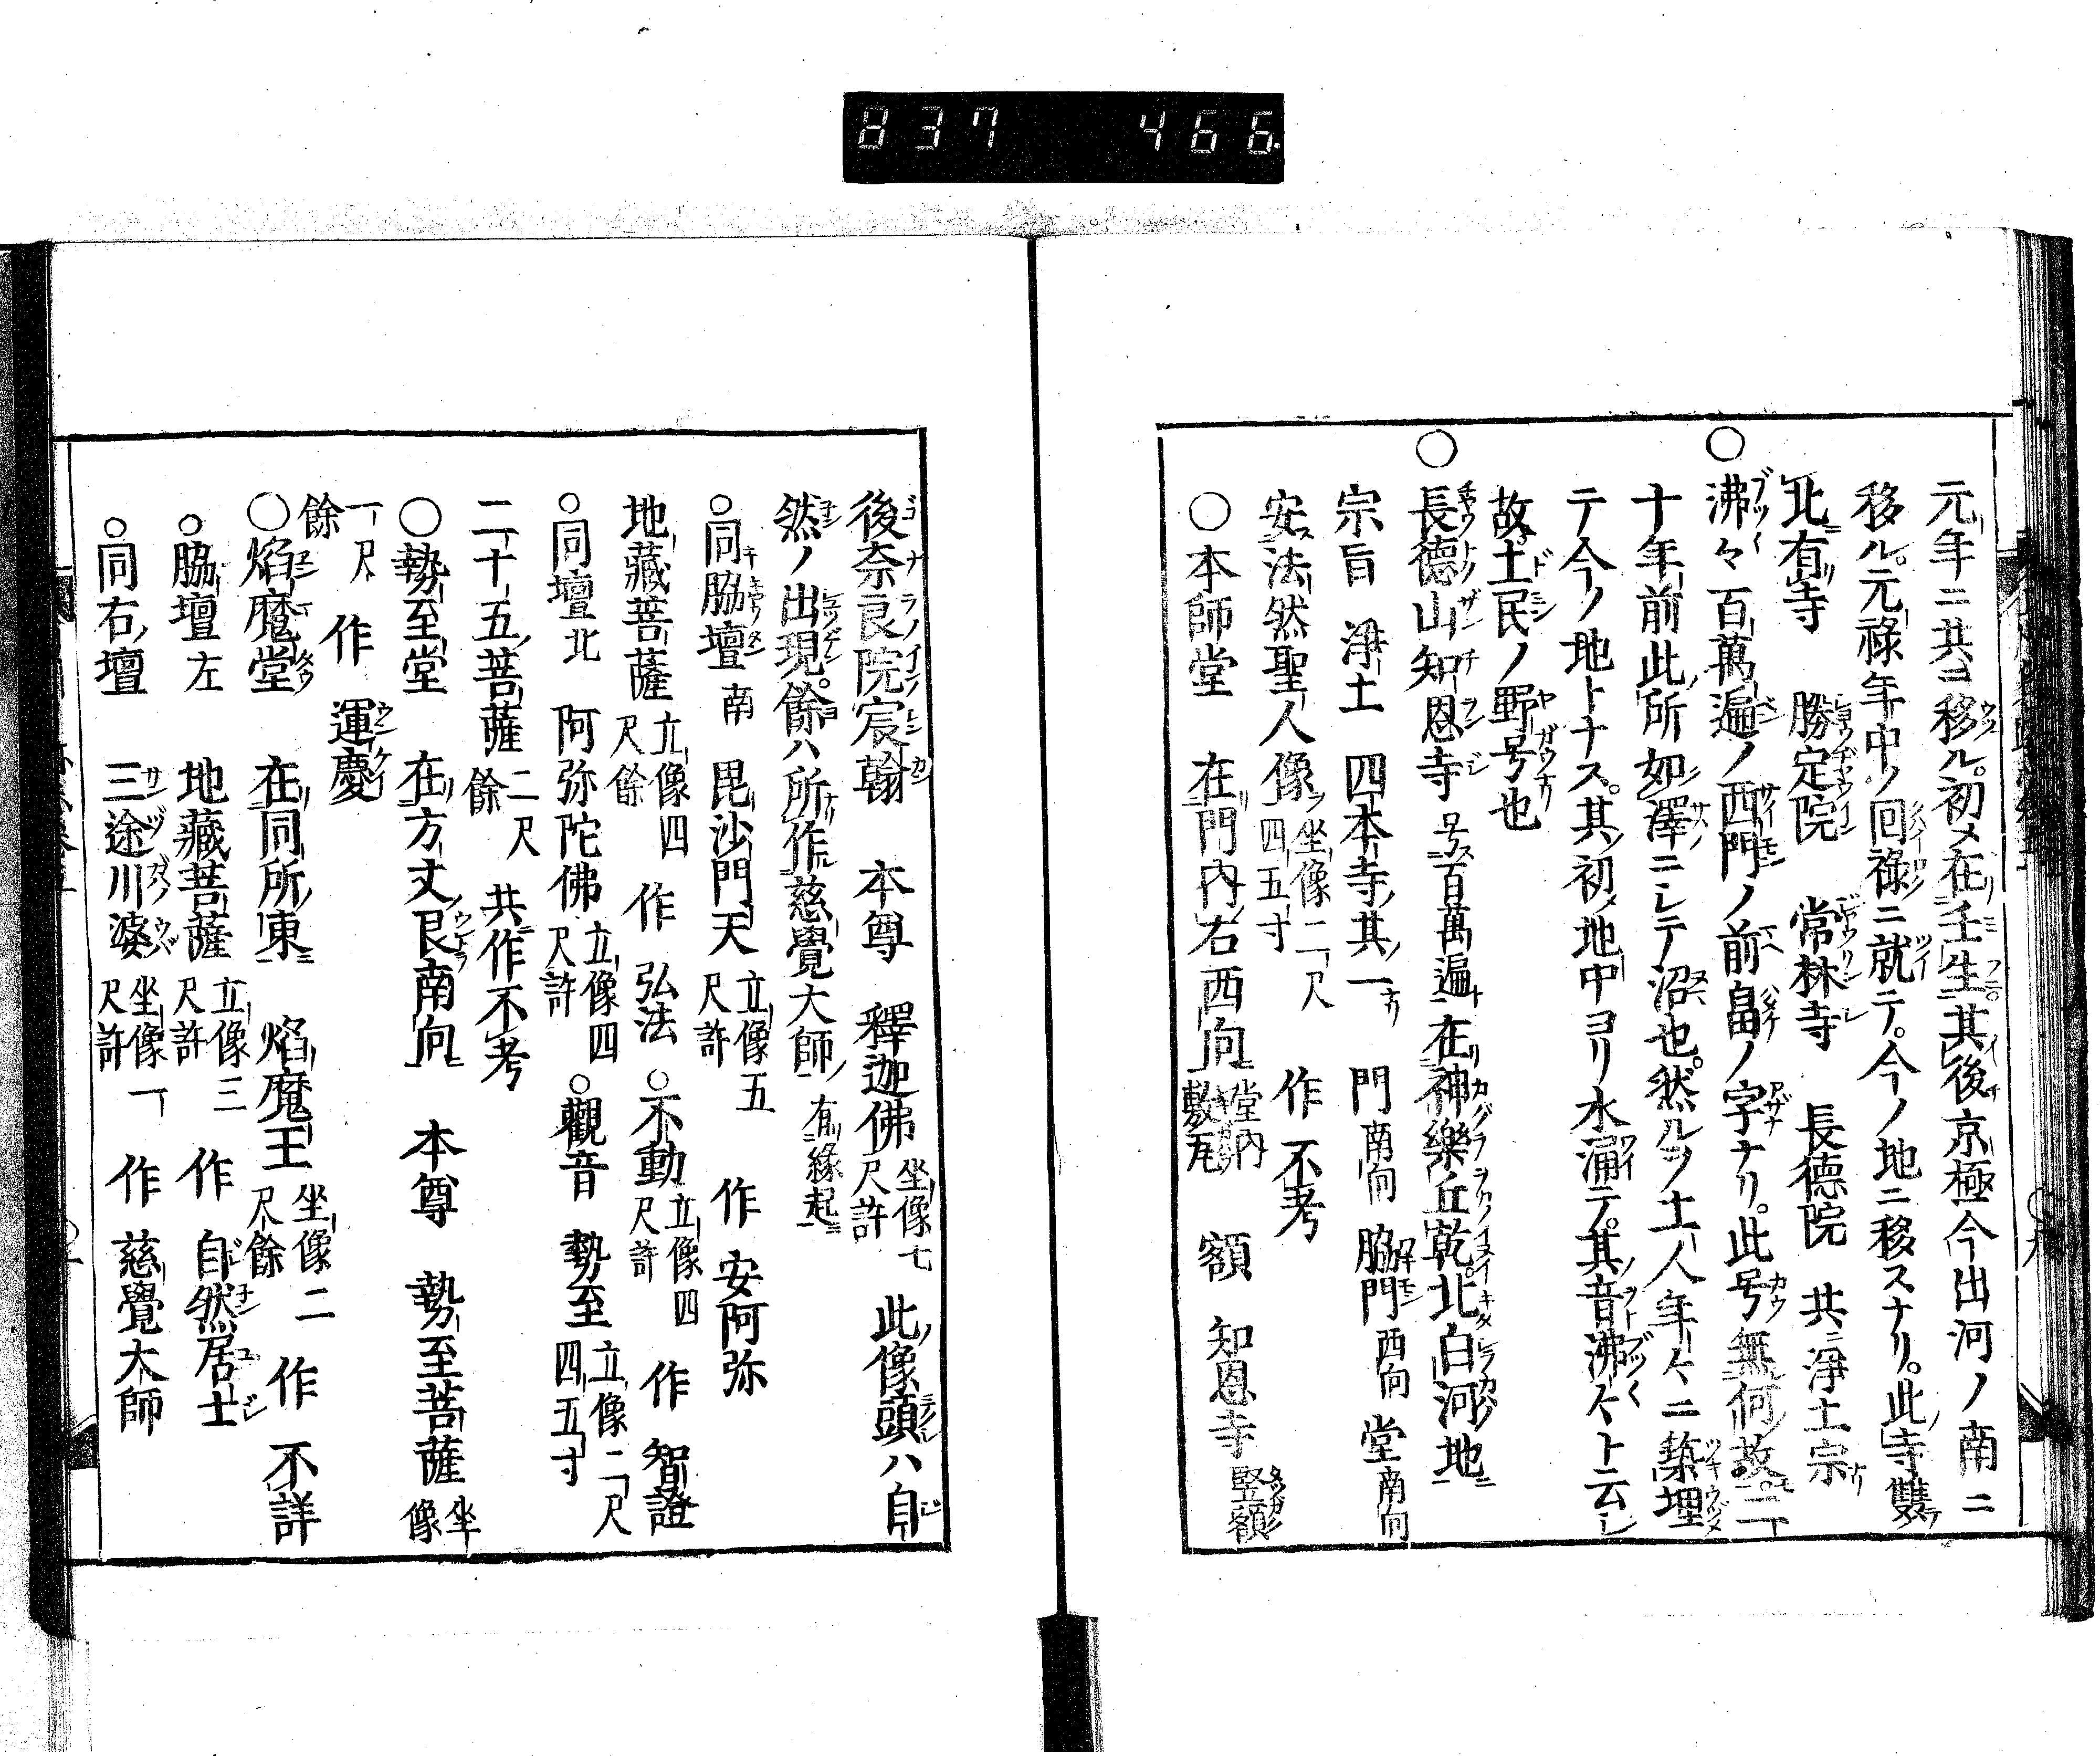 837 466
元年ニ共ヨ移ル。初メ在壬生。其後京極今出河ノ南ニ
移ル。元祿年中ノ回祿ニ就テ。今ノ地ニ移スナリ。此寺雙
北有寺 勝定院 常林寺 長德院 共ニ淨土宗
○沸々 百萬遍ノ西門ノ前畠ノ字ナリ。此号無何故。二
十年前此所如澤ニシテ沼也。然ルヲ土人年々ニ築埋
テ今ノ地トナス。其初地中ヨリ水涌テ。其音沸々ト云シ
故。土民ノ野号也
○長德山知恩寺 号百萬遍 在神樂丘乾。北白河地
宗旨 淨土 四本寺其一 門南向 脇門西向 堂南向
安法然聖人像 坐像二尺四五寸 作不考
○本師堂 在門內右西向 堂內敷瓦 額 知恩寺 竪額
後奈良院宸翰 本尊 釋迦佛 坐像七尺許 此像頭ハ自
然ノ出現。餘ハ所作慈覺大師 有緣起
○同脇壇南 毘沙門天 立像五尺許 作 安阿弥
地藏菩薩 立像四尺餘 作 弘法 ○不動 立像四尺許 作 智證
○同壇北 阿弥陀佛 立像四尺許 ○觀音 勢至 立像二尺四五寸
二十五菩薩 二尺餘 共作不考
○勢至堂 在方丈艮南向 本尊 勢至菩薩 坐像
一尺餘 作 運慶
○焰魔堂 在同所東 焰魔王 坐像二尺餘 作 不詳
○脇壇左 地藏菩薩 立像三尺許 作 自然居士
○同右壇 三途川婆 坐像一尺許 作 慈覺大師